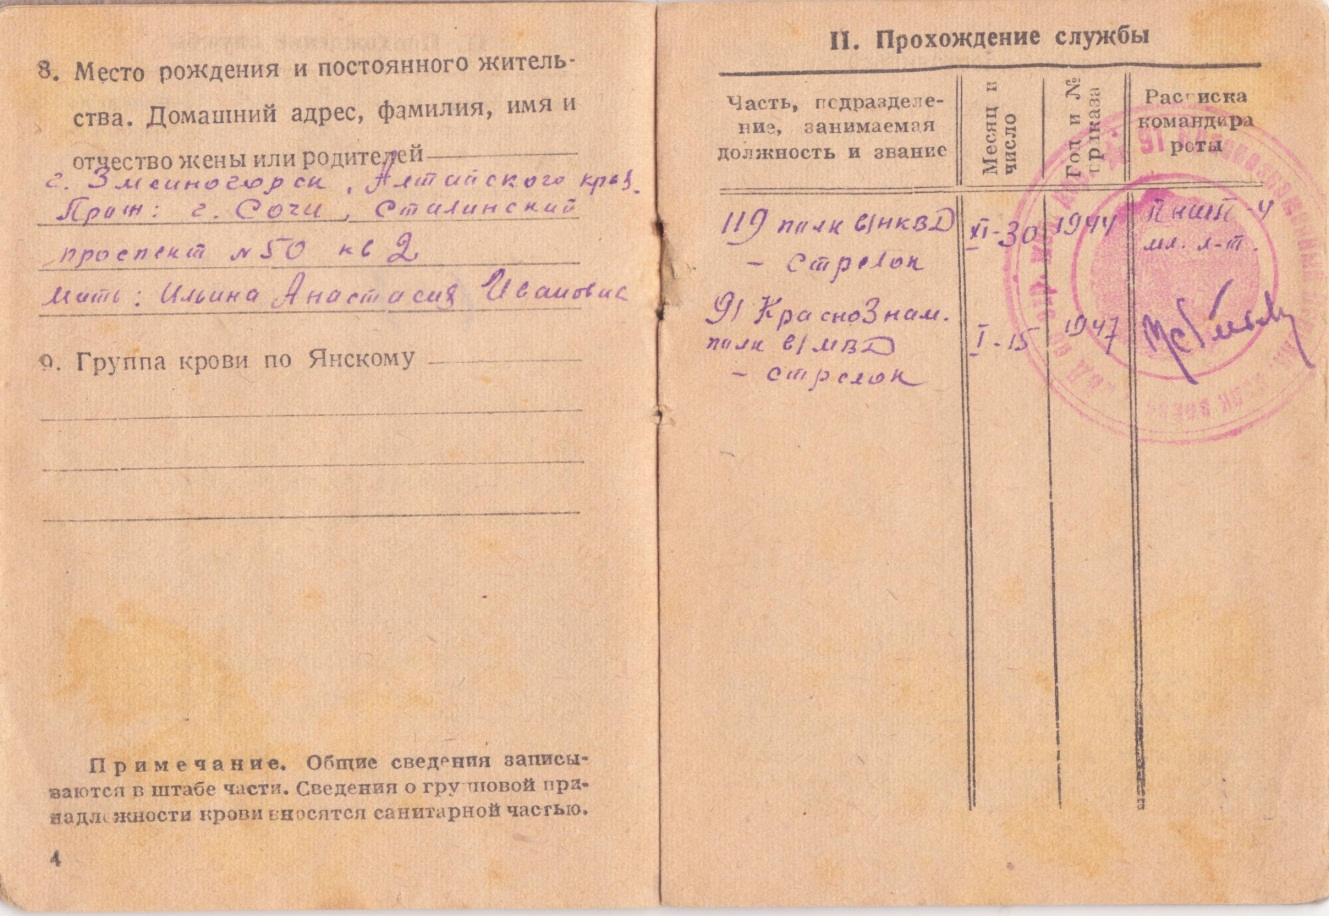 8. Место рождения и постоянного житель-
ства. Домашний адрес, фамилия, имя и
отчество жены или родителей
г. Змеиногорск, Алтайского края.
Прож: г. Сочи, Сталинский
проспект № 50 кв 2
Мать: Ильина Анастасия Ивановна
9. Группа крови по Янскому
Примечание. Общие сведения записы-
ваются в штабе части. Сведения о групповой при-
надлежности крови вносятся санитарной частью.
4
II. Прохождение службы
Часть, подразделе-
ние, занимаемая
должность и звание
Месяц и
число
Год и №
приказа
Расписка
командира
роты
119 полк в/НКВД
- стрелок
XI-30
1944
ПНШ-4
мл. л-т.
91 КрасноЗнам.
полк в/МВД
- стрелок
I-15
1947